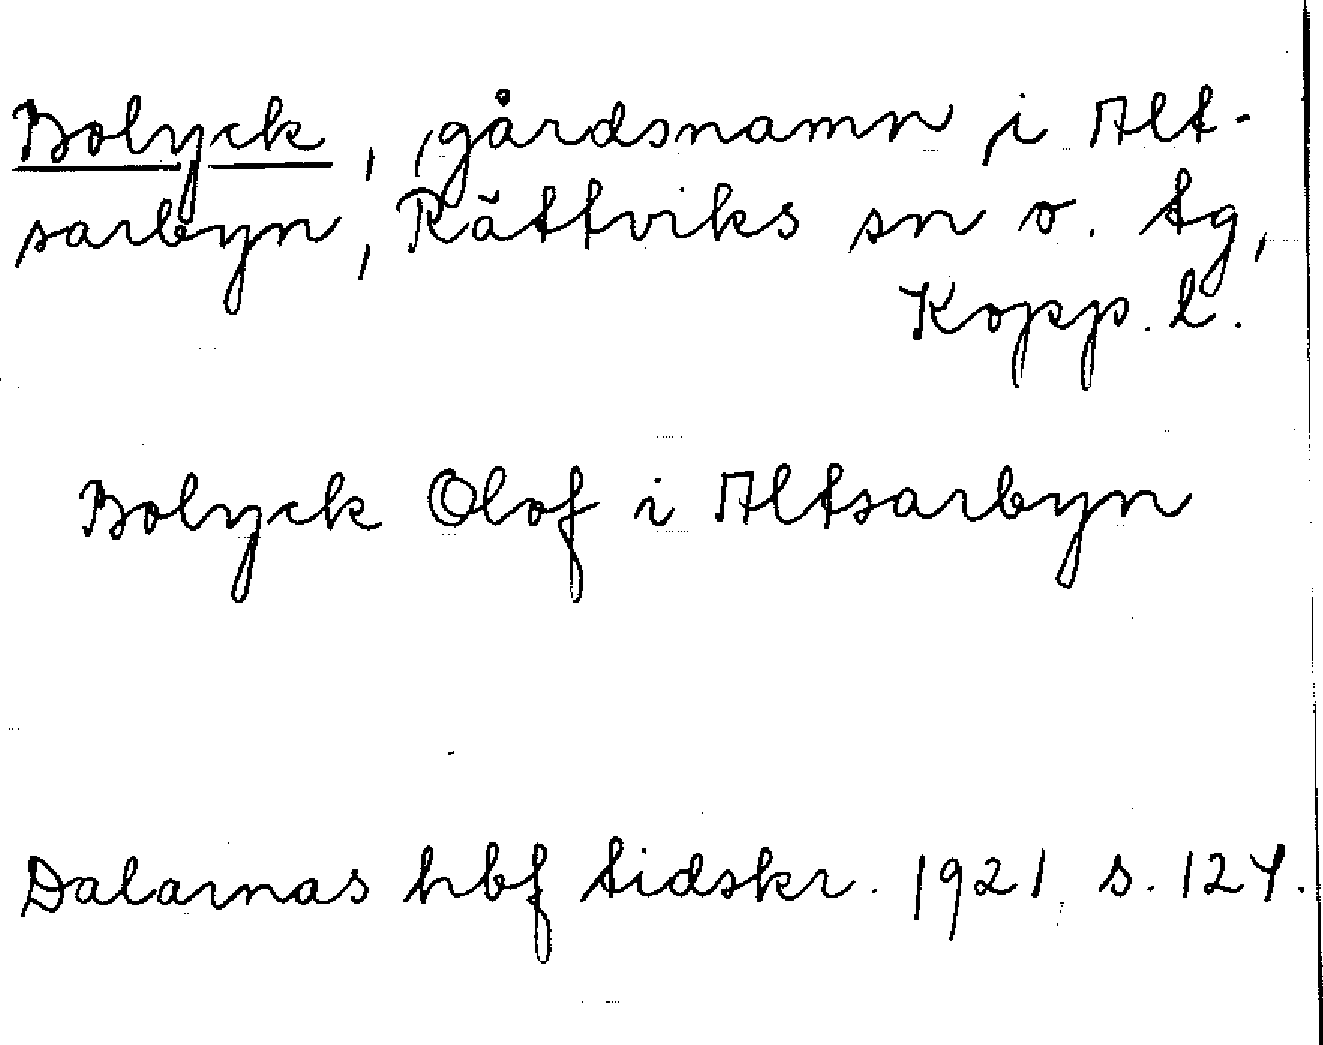 Bolyck, gårdsnamn i Alt-
sarbyn, Rättviks sn o. tg,
Kopp. l.
Bolyck Olof i Altsarbyn
Dalarnas hbf tidskr. 1921 s. 124.